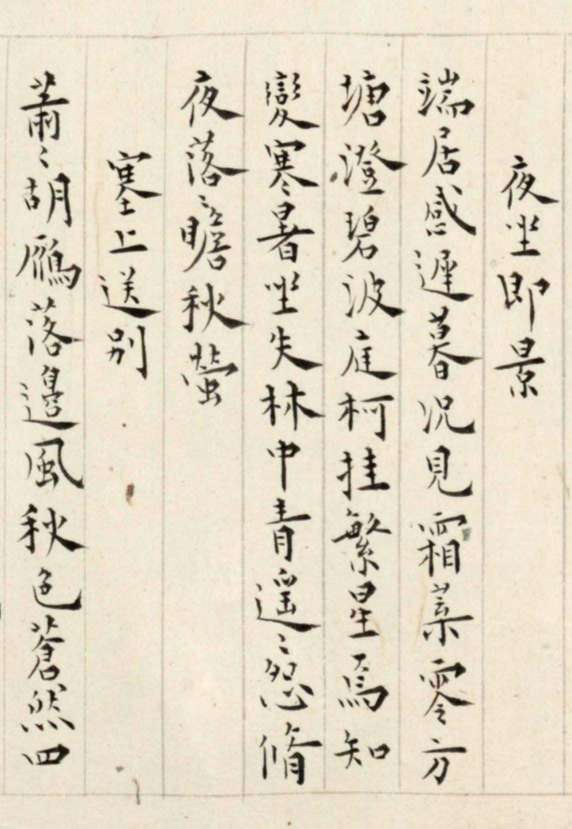 夜坐即景
端居感遲暮況見霜葉零方
塘澄碧波庭柯挂繁星焉知
變寒暑坐失林中青遥〻怨脩
夜落〻瞻秋螢
塞上送別
蕭〻胡鴈落邊風秋色蒼然四